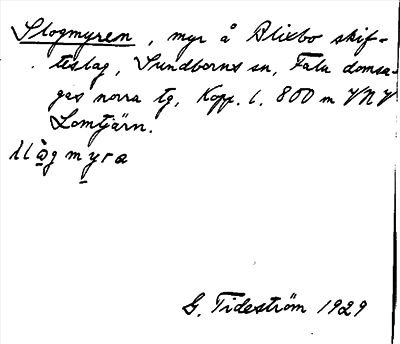 Slogmyren, myr å Blixbo skif-
teslag, Sundborns sn, Falu domsa-
gas norra tg, Kopp. l. 800 m VNV
Lomtjärn.
G. Tideström 1929